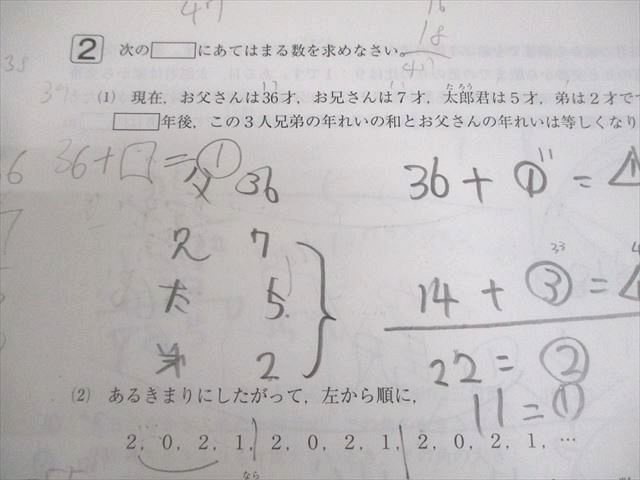 47
18
407
2 次の□にあてはまる数を求めなさい。
38
39
(1) 現在，お父さんは36才，お兄さんは7才，太郎君は5才，弟は2才でで
たろう
□年後，この3人兄弟の年れいの和とお父さんの年れいは等しくなり
36+□=①
父 36
36 + ① = △
11
兄 7
太 5
14 + ③ = △
33
弟 2
22 = ②
11 = ①
(2) あるきまりにしたがって，左から順に，
2，0，2，1，2，0，2，1，2，0，2，1，…
なら